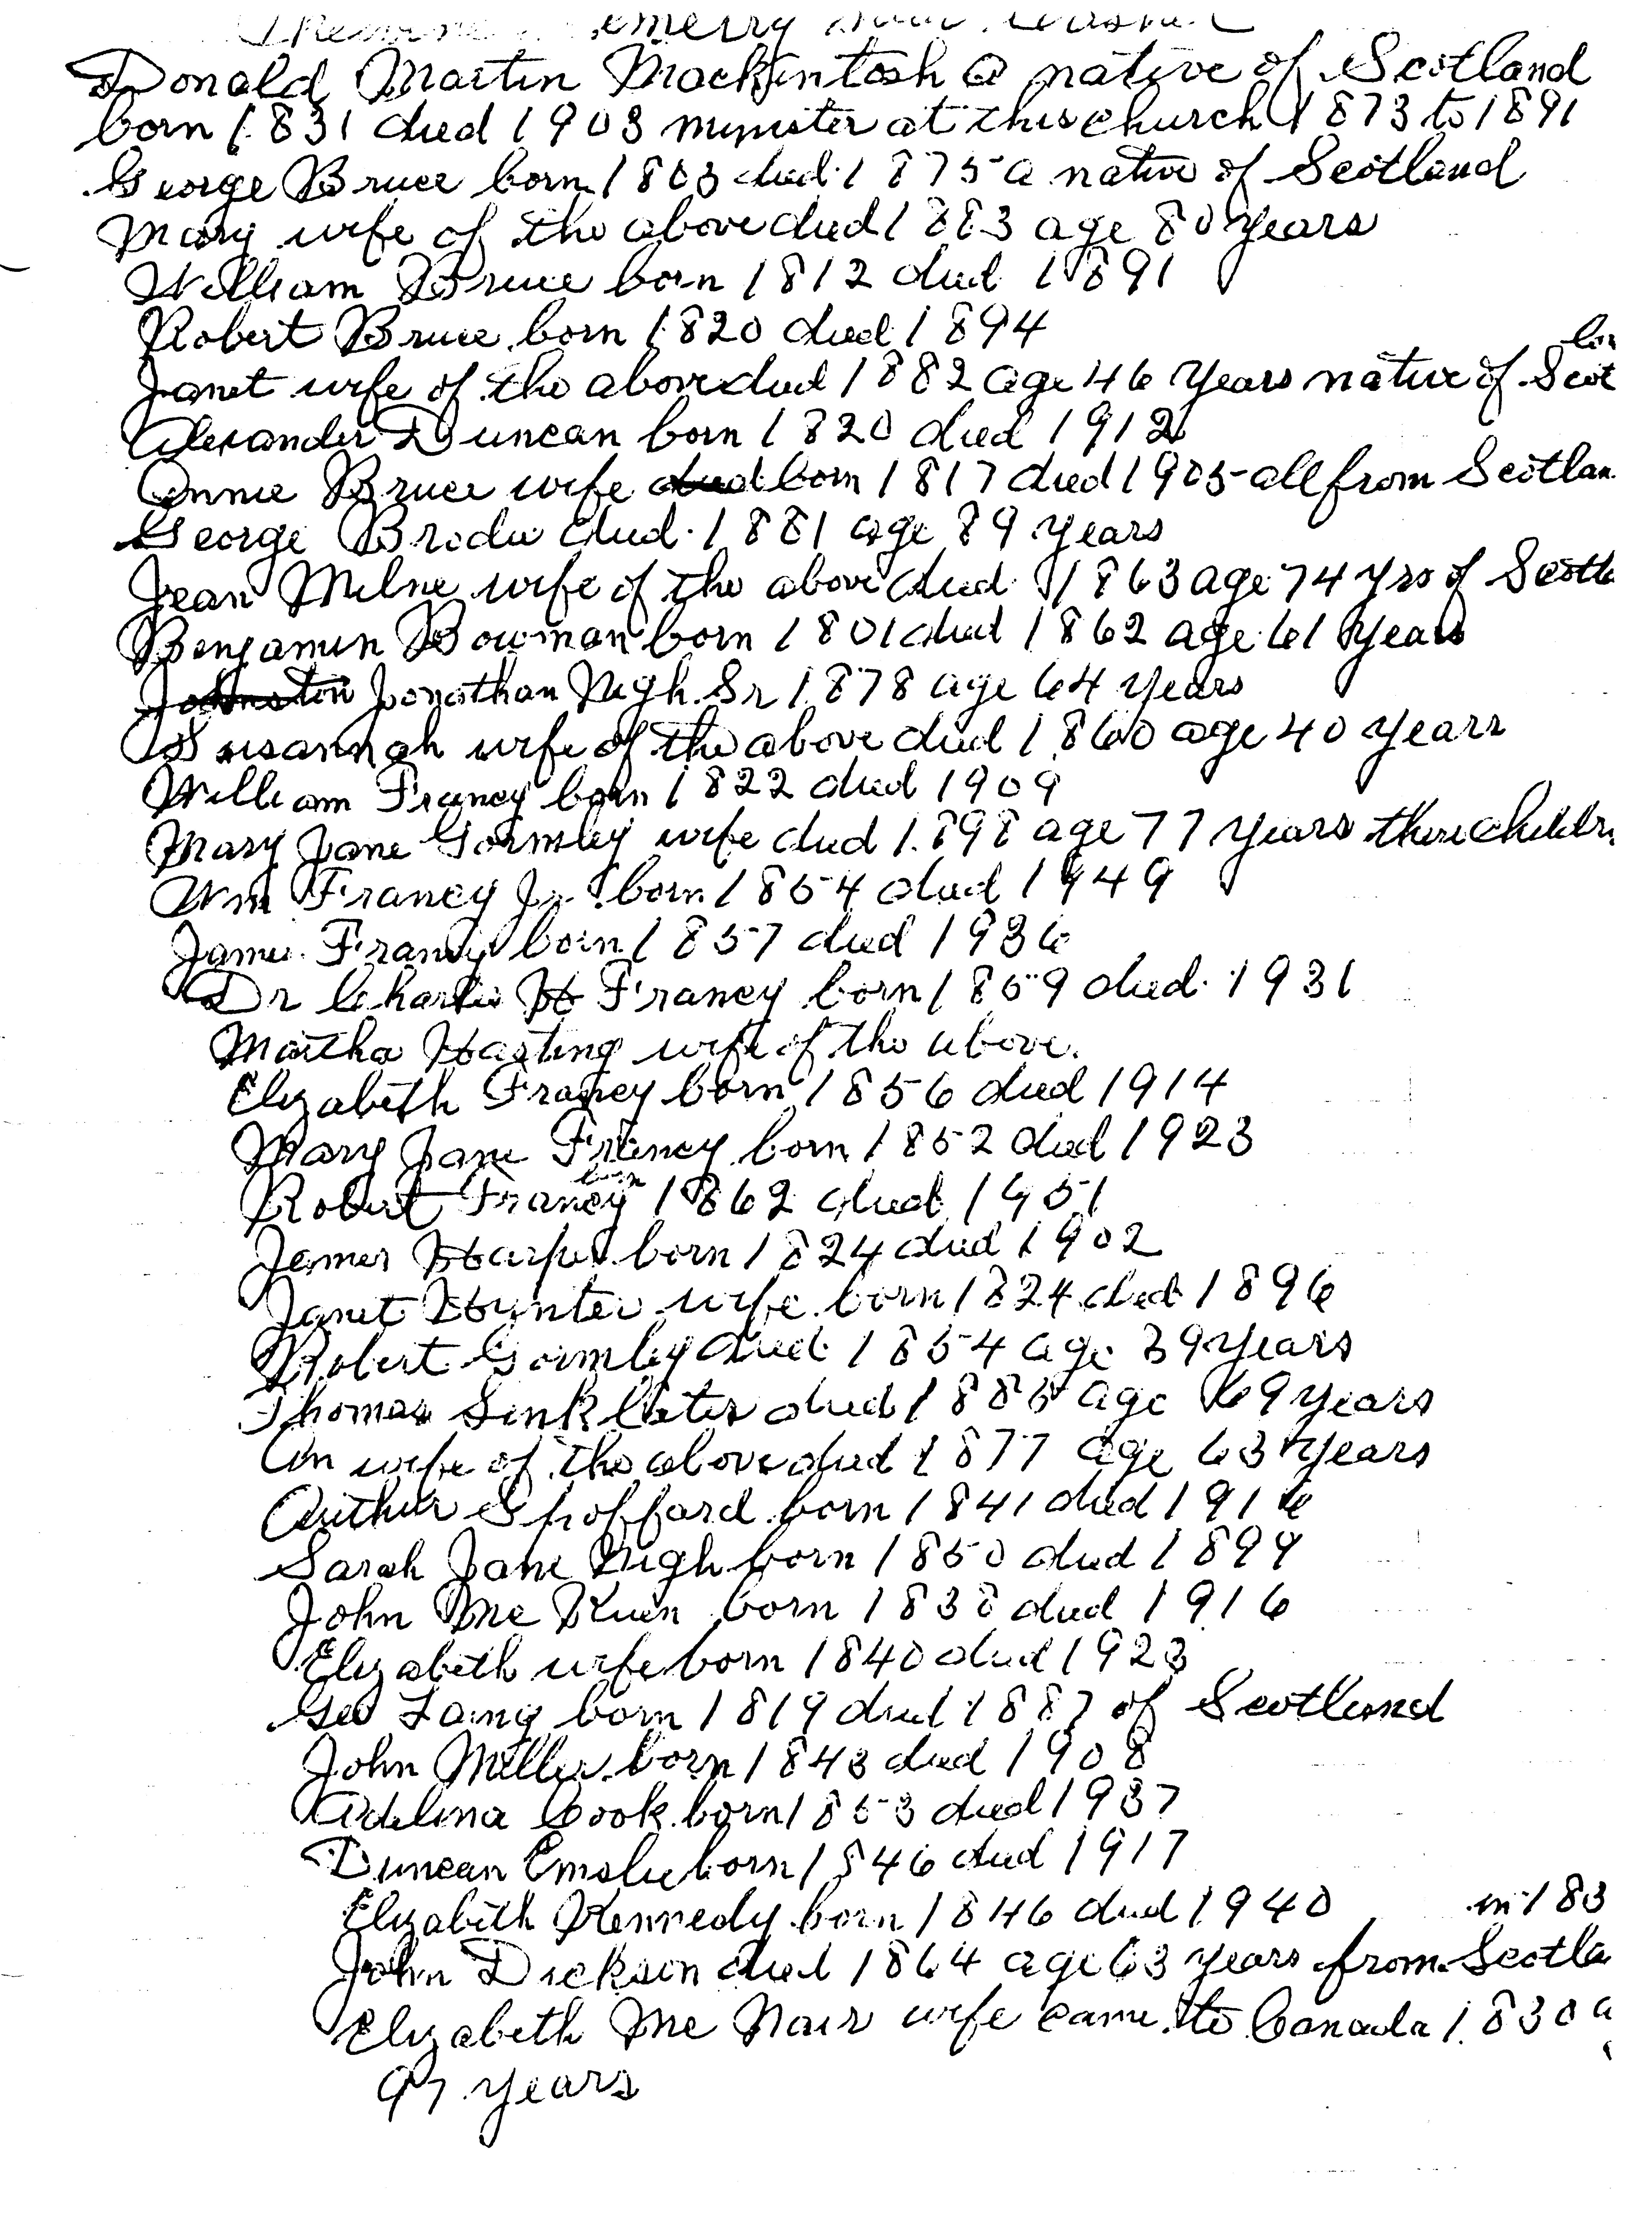 Donald Martin Mackintosh a native of Scotland
born 1831 died 1903 minister at this church 1873 to 1891
George Bruce born 1803 died 1875 a native of Scotland
Mary wife of the above died 1883 age 80 years
William Bruce born 1812 died 1891
Robert Bruce born 1820 died 1894
Janet wife of the above died 1882 age 46 years native of Scot
Alexander Duncan born 1820 died 1912
Annie Bruce wife died born 1817 died 1905 all from Scotlan
George Brodie died 1881 age 89 years
Jean Milne wife of the above died 1863 age 74 yrs of Scotla
Benjamin Bowman born 1801 died 1862 age 61 years
Johnston Jonathan Nigh Sr 1878 age 64 years
Susannah wife of the above died 1860 age 40 years
William Francy born 1822 died 1909
Mary Jane Gormley wife died 1898 age 77 years there childr
Wm Francy Jr. born 1854 died 1949
James Francy born 1857 died 1936
Dr Charlie H Francy born 1859 died 1931
Martha Hasting wife of the above.
Elizabeth Francy born 1856 died 1914
Mary Jane Francy born 1852 died 1923
Robert Francy born 1862 died 1951
James Harper born 1824 died 1902
Janet Hunter wife born 1824 died 1896
Robert Gormley died 1854 age 39 years
Thomas Sinklater died 1885 age 69 years
An wife of the above died 1877 age 63 years
Arthur Spoffard born 1841 died 1916
Sarah Jane Nigh born 1850 died 1899
John Mc Kuen born 1838 died 1916
Elizabeth wife born 1840 died 1923
Geo Laing born 1819 died 1887 of Scotland
John Miller born 1843 died 1908
Adelina Cook born 1853 died 1937
Duncan Emslie born 1846 died 1917
Elizabeth Kennedy born 1846 died 1940 in 183
John Dickson died 1864 age 63 years from Scotla
Elizabeth Mc Nair wife came to Canada 1830 a
97 years